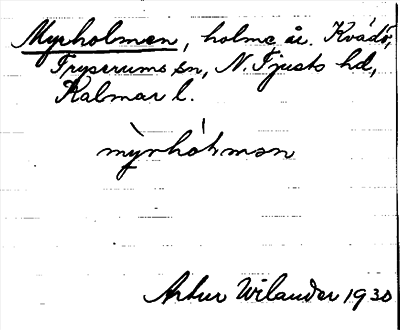 Myrholmen, holme åi. Kvädö,
Tryserums sn, N. Tjusts hd,
Kalmar l.
mỳrhól̥mən
Artur Wilander 1930